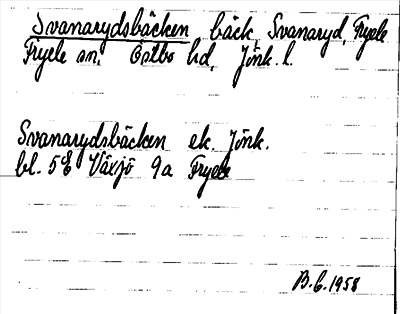 Svanarydsbäcken bäck, Svanaryd, Fryele
Fryele sn, Östbo hd, Jönk. l.
Svanarydsbäcken ek. Jönk.
bl. 5E Växjö 9a Fryele
B.G. 1958